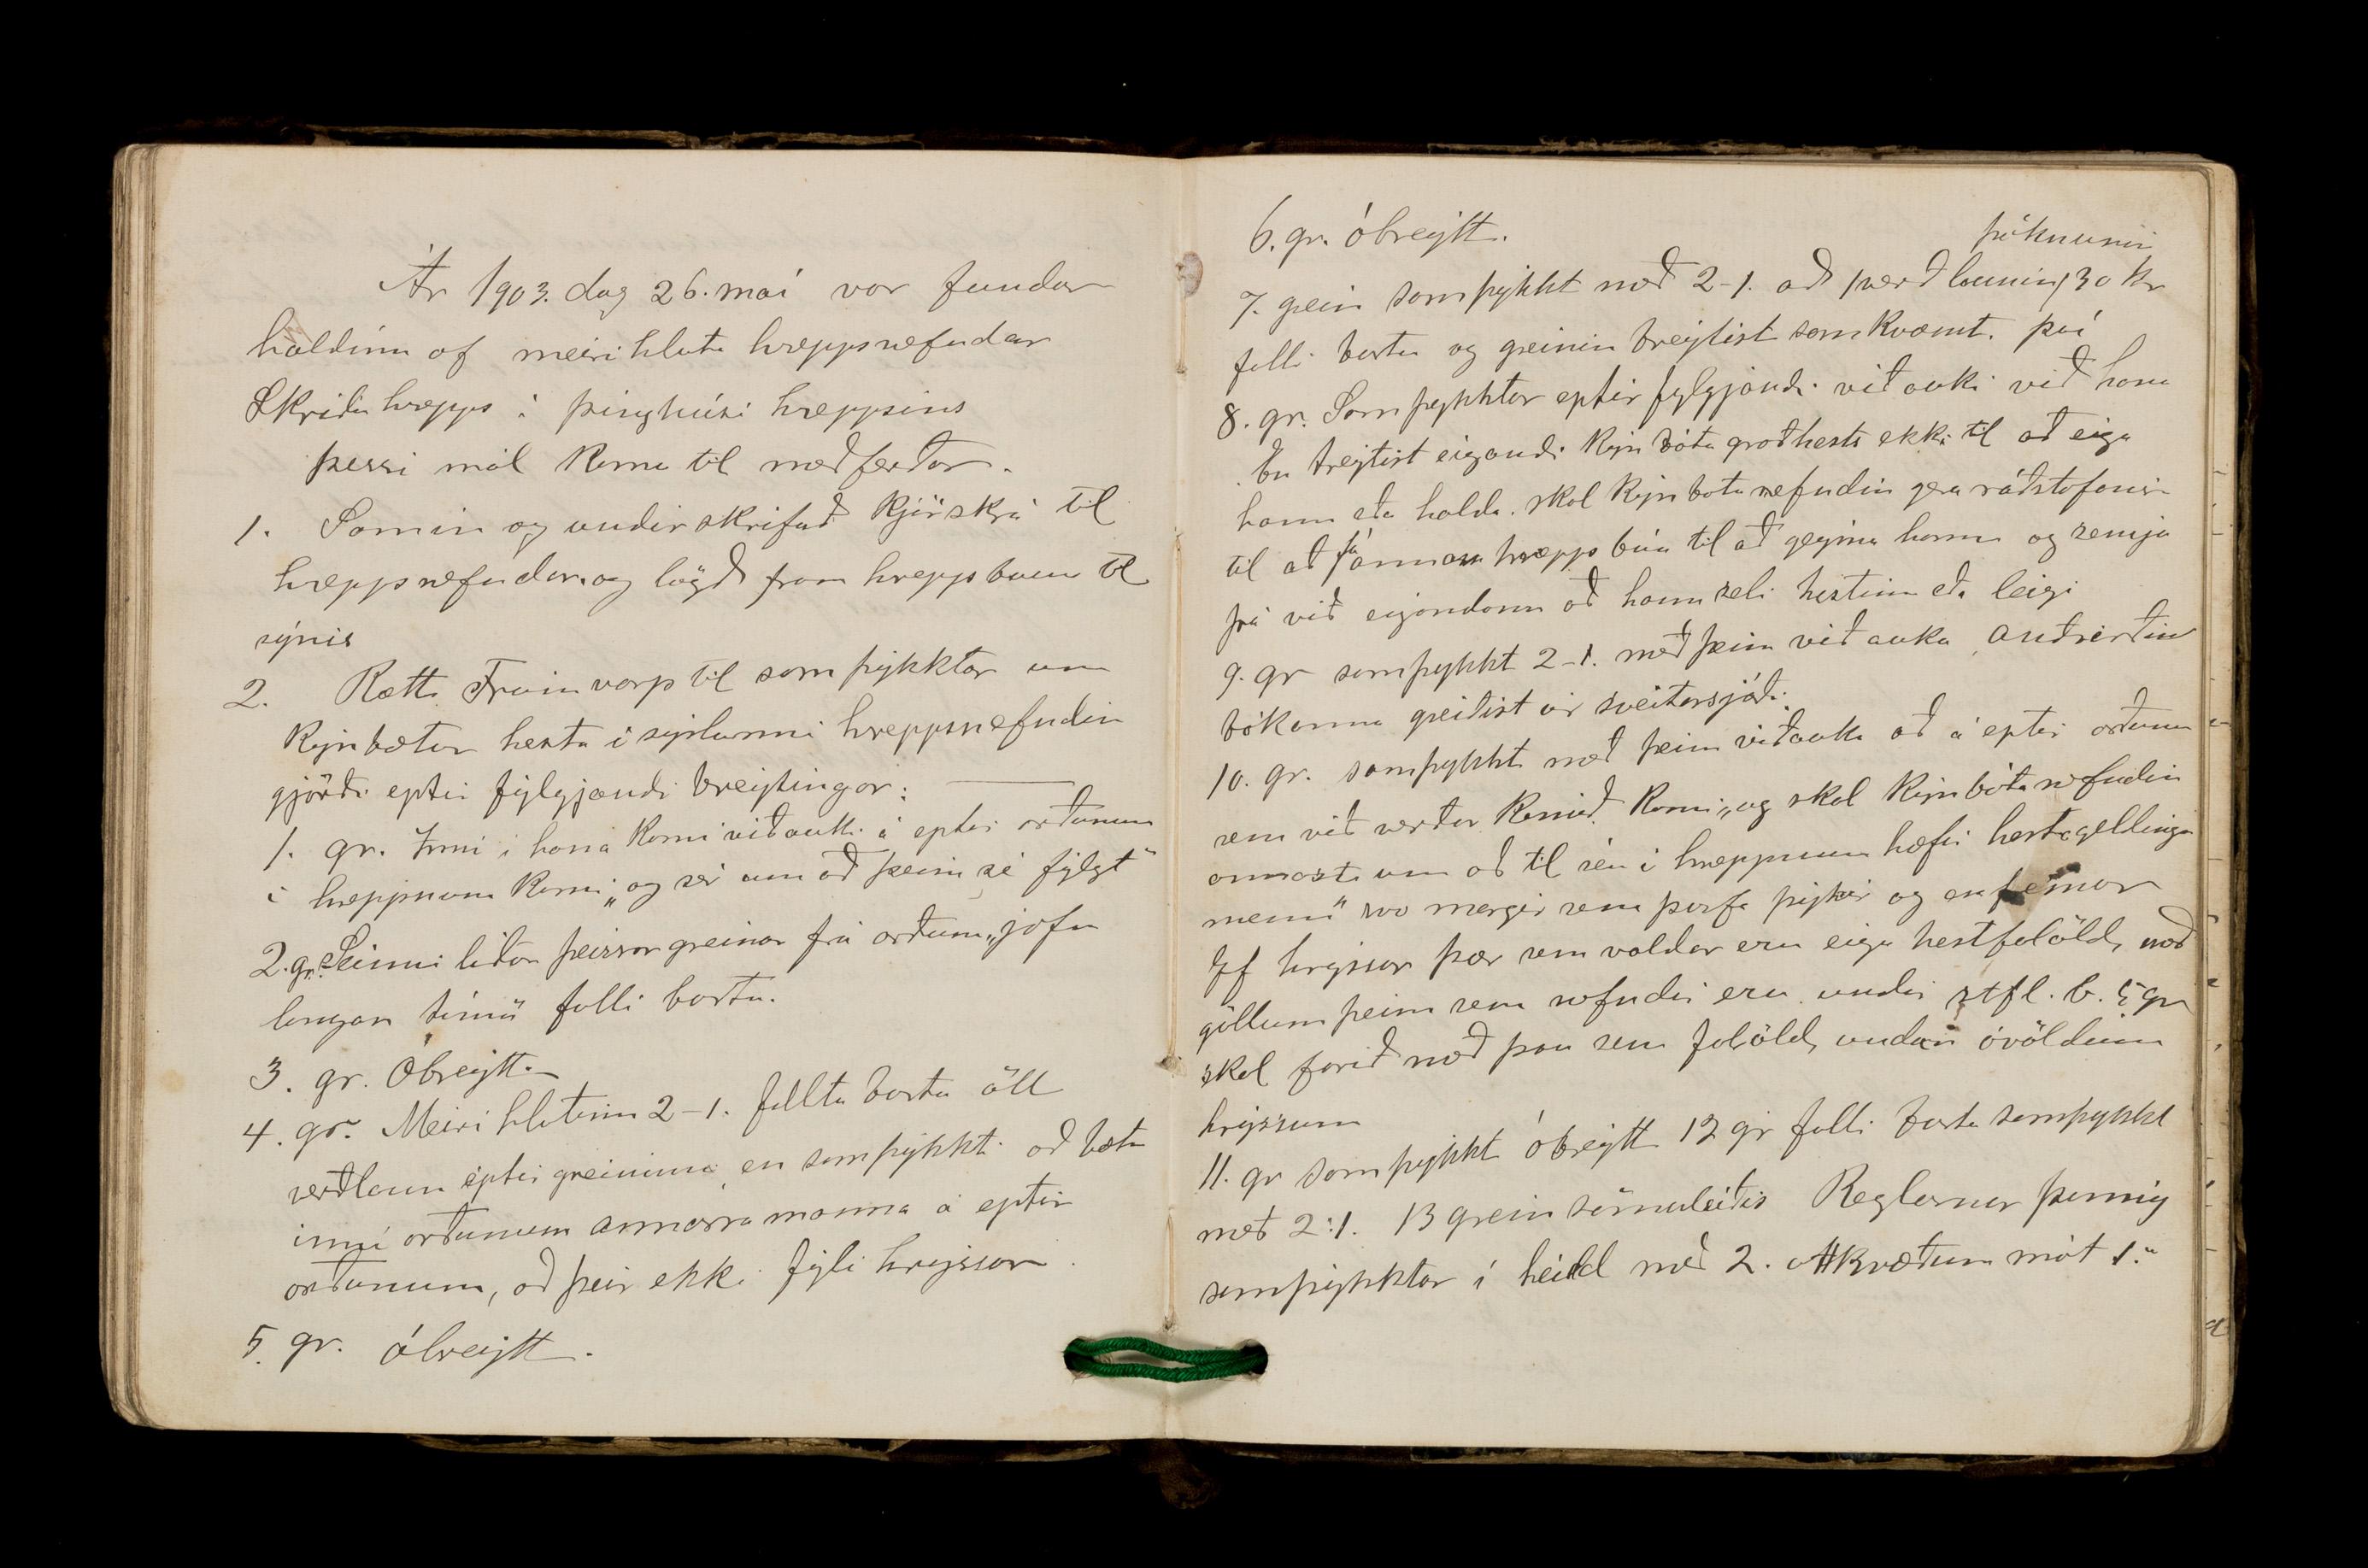 Ár 1903. dag 26. maí var fundar
haldinn af meirihluta hreppsnefndar
Skriðuhrepps í þinghúsi hreppsins
þessi mál komu til meðferðar.
1. Samin og undirskrifuð kjörskrá til
hreppsnefndar. og lögð fram hreppsbúum til
sýnis
2. Rætt Frumvarp til samþykktar um
kynbætur hesta í sýslunni hreppsnefndin
gjörði eptir fylgjandi breytingar:
1. gr. Inni í hana komi viðauki á eptir orðunum
í hreppnum komi „og sér um að þeim sé fylgt"
2. gr. Seinni liður þeirrar greinar frá orðum „jafn
langan tíma" falli burtu.
3. gr. Óbreytt.
4. gr. Meiri hlutinn 2-1. felldu burtu öll
verðlaun eptir greininni, en samþykkti að bæta
inní orðunum annarra manna á eptir
orðunum, að þeir ekki fyli hryssur
5. gr. óbreytt.
6. gr. óbreytt.
þóknunin
7. grein samþykkt með 2-1. að verðlaunin 30 kr
falli burtu og greinin breytist samkvæmt. því
8. gr. Samþykktur eptir fylgjandi viðauki við hana
En treytist eigandi kynbóta graðhests ekki til að eiga
hann eða halda. skal kynbótanefndin gera ráðstafanir
til að fá annan hreppsbúa til að geyma hann og semja
þá við eigandann að hann seli hestinn eða leigi
9. gr samþykkt 2-1. með þeim viðauka, andvirðin
bókanna greiðist úr sveitarsjóði.
10. gr. samþykkt með þeim viðauka að á eptir orðunum
sem við verður komið. komi „og skal kynbótanefndin
annast um að til séu í hreppnum hæfir hestageldinga
menn" svo margir sem þurfa þykir og
Ef hryssur þær sem valdar eru eiga hestfolöld, með
göllum þeim sem nefndir eru undir stfl. b. 5 gr
skal farið með þau sem folöld, undan óvöldum
hryssum
11. gr samþykkt óbreytt 12 gr falli burtu samþykkt
með 2:1. 13 grein sömuleiðis Reglurnar þannig
samþykktar í heild með 2. atkvæðum mót 1."